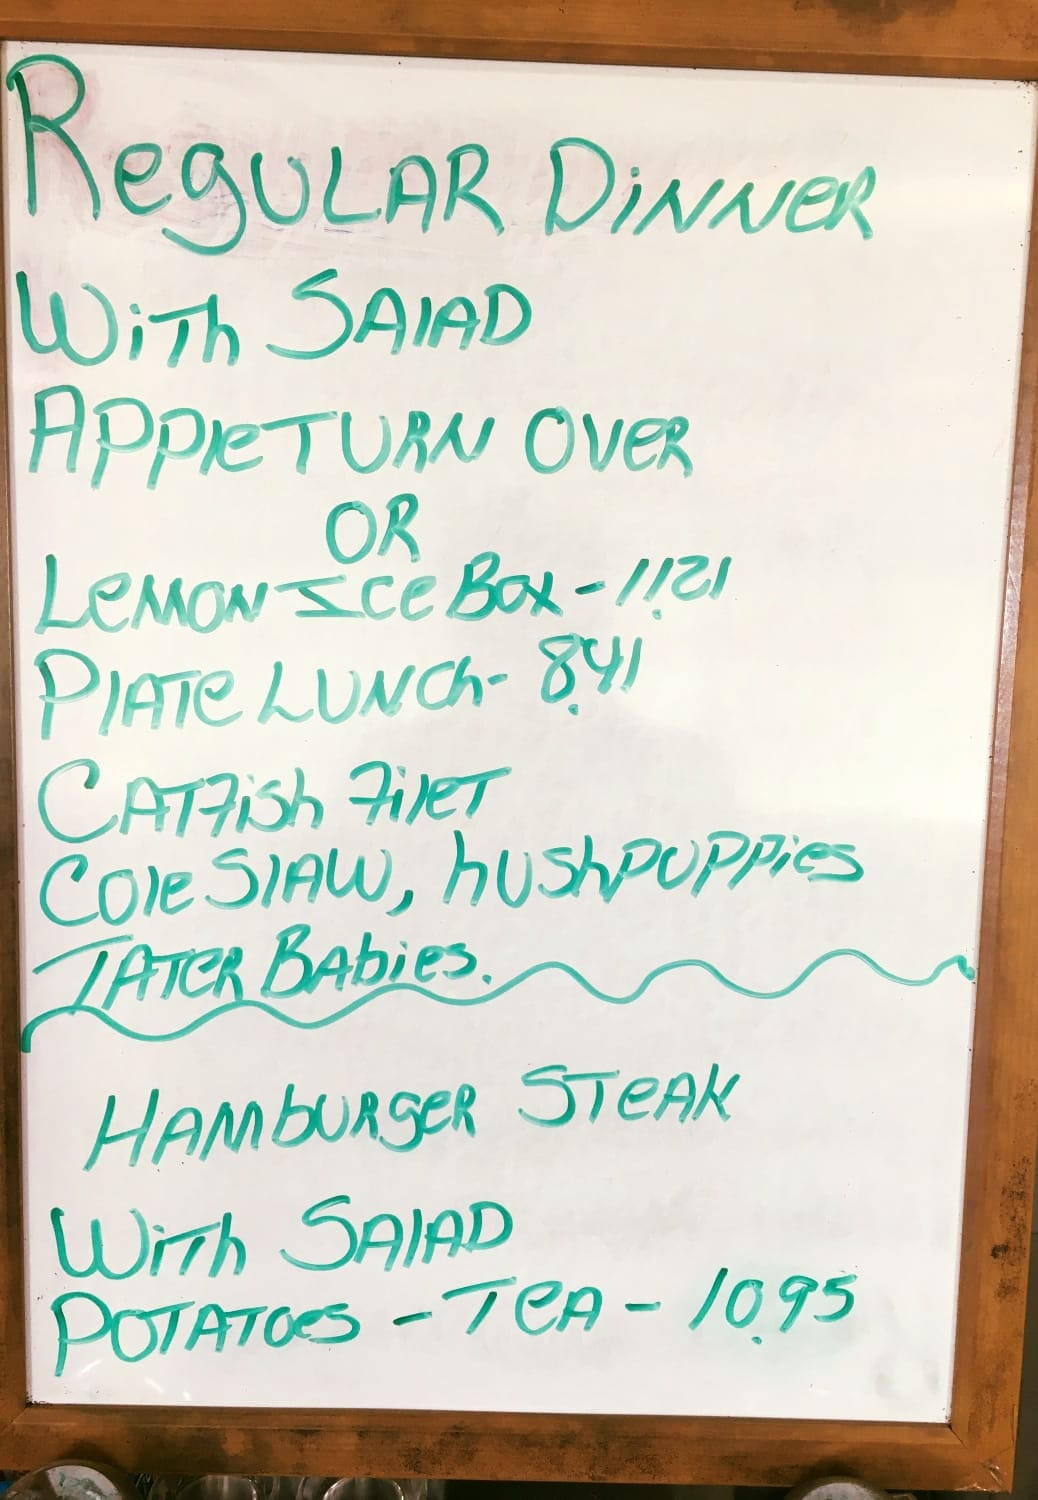 Regular Dinner
With Salad
Apple Turn Over
OR
Lemon Ice Box - 11.21
Plate Lunch - 8.41
Catfish Filet
Cole Slaw, hushpuppies
Tater Babies.
Hamburger Steak
With Salad
Potatoes - Tea - 10.95